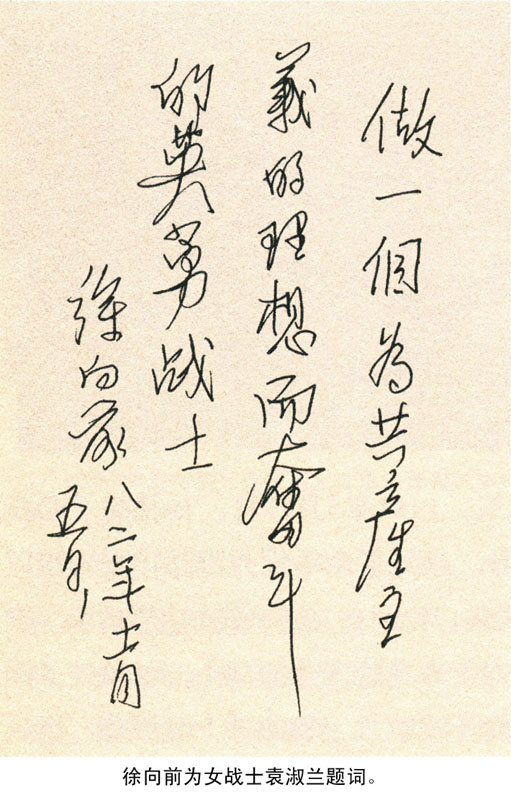 做一個為共產主
義的理想而奮斗
的英勇战士
徐向前
八二年十一月
五日
徐向前为女战士袁淑兰题词。